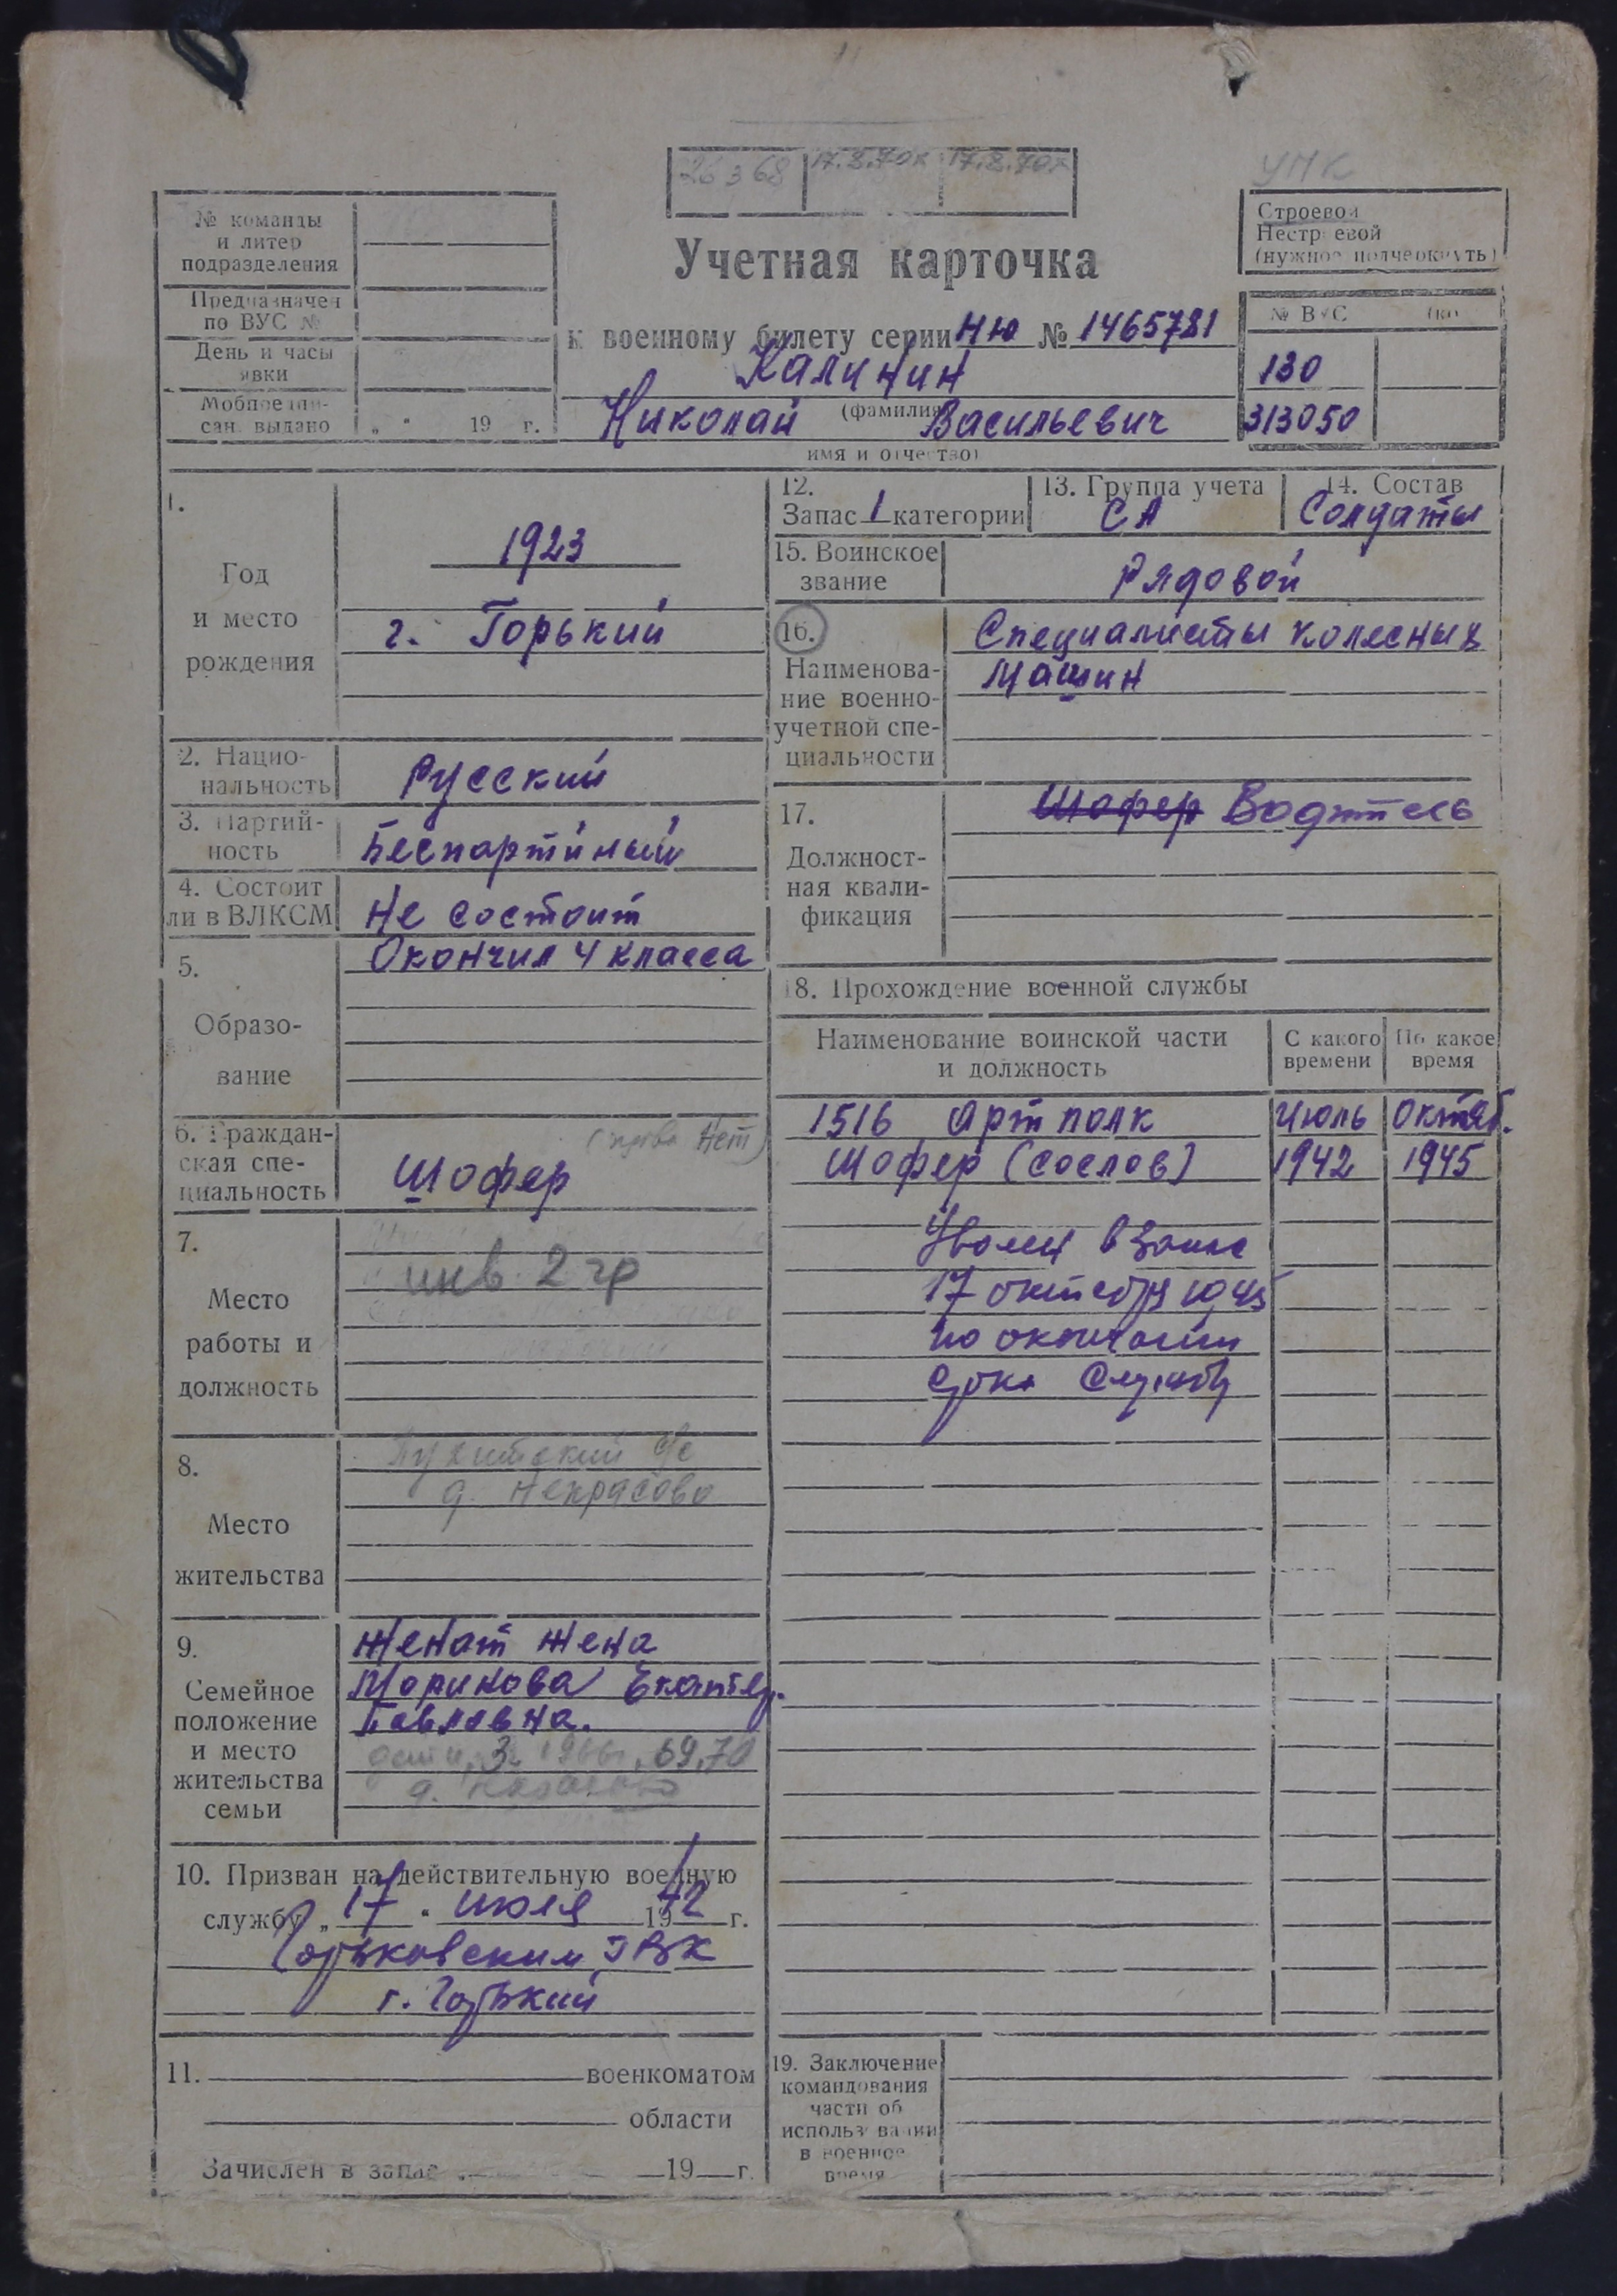 26 3 68 17.8.70г 17.8.70г
УПК
№ команды
и литер
подразделения
Предназначен
по ВУС №
День и часы
явки
Мобпредпи-
сан. выдано „ “ 19 г.
Учетная карточка
к военному билету серии НЮ № 1465781
Калинин
(фамилия)
Николай Васильевич
имя и отчество)
Строевой
Нестроевой
(нужное подчеркнуть)
№ ВУС
130
313050
1.
Год
и место
рождения
1923
г. Горький
2. Нацио-
нальность
Русский
3. Партий-
ность
Беспартийный
4. Состоит
ли в ВЛКСМ
Не состоит
5.
Образо-
вание
Окончил 4 класса
6. Граждан-
ская спе-
циальность
(права нет)
Шофер
7.
Место
работы и
должность
инв. 2 гр
8.
Место
жительства
с/с
д. Некрасово
9.
Семейное
положение
и место
жительства
семьи
Женат жена
Маринова Екатер.
Павловна.
дети, 3 1966, 69, 70
д.
10. Призван на действительную военную
службу „ 17 “ июля 1942 г.
Горьковским ГВК
г. Горький
11. военкоматом
области
Зачислен в запас „ 19 г.
12.
Запас 1 категории
13. Группа учета
СА
14. Состав
Солдаты
15. Воинское
звание
Рядовой
16.
Наименова-
ние военно-
учетной спе-
циальности
Специалисты колесных
машин
17.
Должност-
ная квали-
фикация
Шофер Водитель
18. Прохождение военной службы
Наименование воинской части
и должность
С какого
времени
По какое
время
1516 Арт полк Июль Октяб.
Шофер (сослов) 1942 1945
Уволен в запас
17 октября 1945
по окончании
срока службы
19. Заключение
командования
части об
использовании
в военное
время